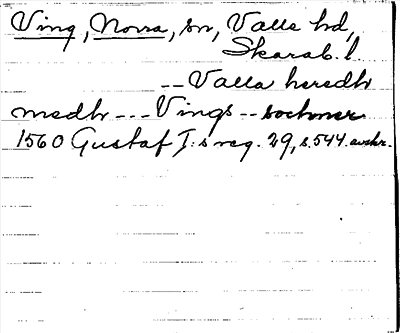 Ving, Norra, sn, Valle hd,
Skarab. l.
-- Valla heredh
medh --- Vings -- sochner
1560 Gustaf I:s reg. 29, s. 544. avskr.